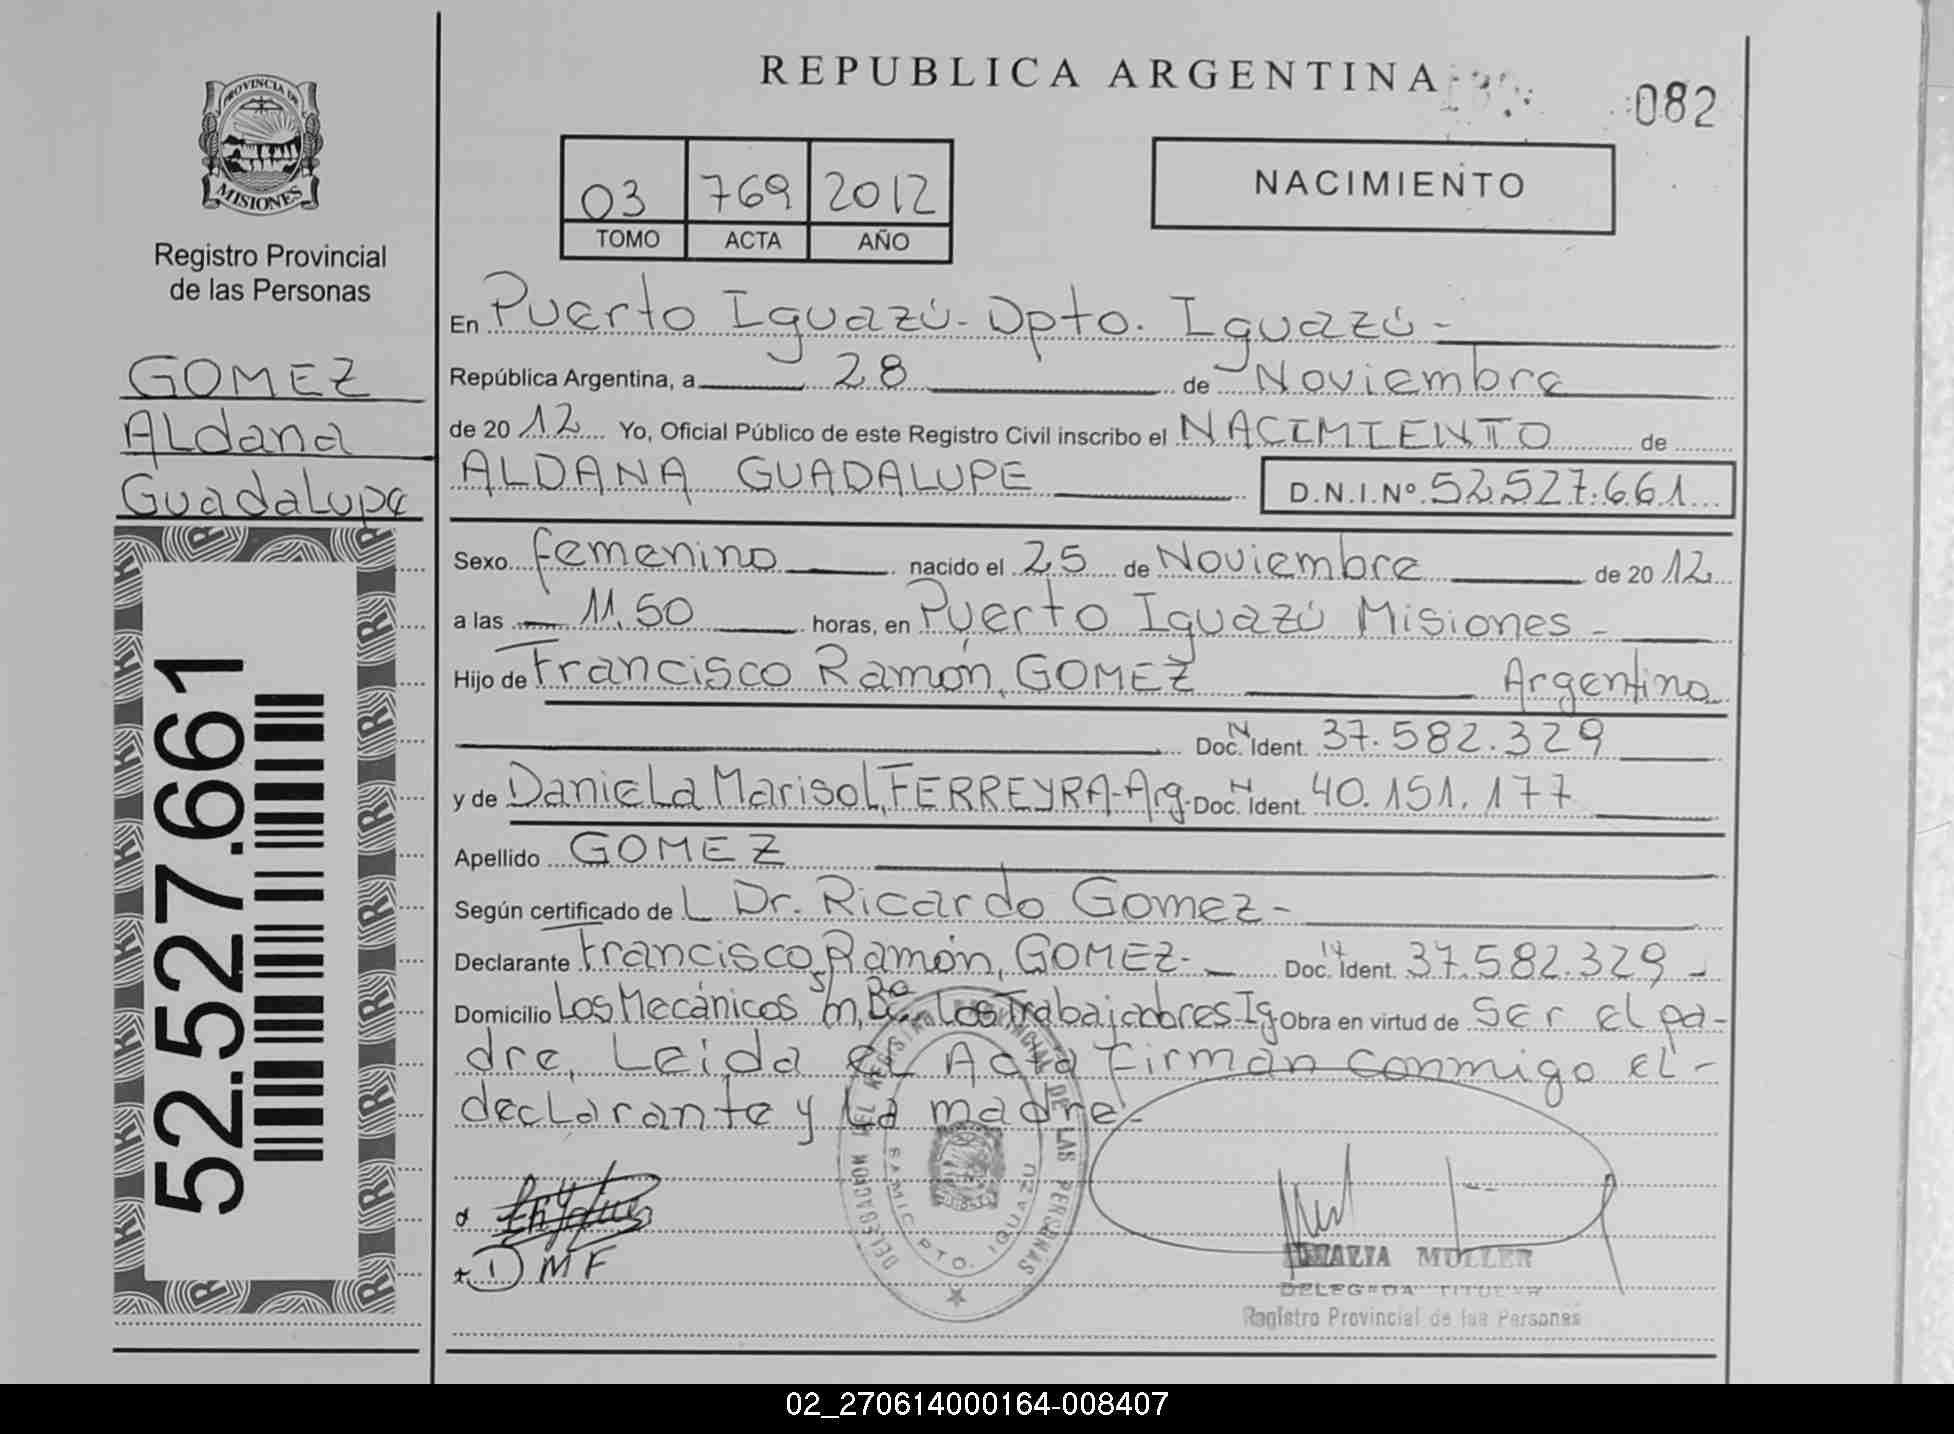 REPUBLICA ARGENTINA
082
PROVINCIA DE
MISIONES
Registro Provincial
de las Personas
03 769 2012
TOMO ACTA AÑO
NACIMIENTO
GOMEZ
ALdana
GuadaLupe
52.527.661
En Puerto Iguazú - Dpto. Iguazú -
República Argentina, a 28 de Noviembre
de 20 12 Yo, Oficial Público de este Registro Civil inscribo el NACIMIENTO de
ALDANA GUADALUPE D.N.I.Nº 52.527.661
Sexo femenino nacido el 25 de Noviembre de 20 12
a las 11.50 horas, en Puerto Iguazú Misiones -
Hijo de Francisco Ramón, GOMEZ Argentino
Doc. N Ident. 37.582.329
y de DanieLa MarisoL, FERREYRA - Arg. Doc. N Ident. 40.151.177
Apellido GOMEZ
Según certificado de L Dr. Ricardo Gomez -
Declarante Francisco Ramón, GOMEZ - Doc. Ident. 37.582.329 -
Domicilio Los Mecánicos s/n, Bo Los Trabajadores Ig Obra en virtud de ser el pa-
dre, Leida eL Acta Firman conmigo eL -
decLarante y La madre -
DELEGACION DEL REGISTRO PROVINCIAL DE LAS PERSONAS
DPTO. IGUAZU
D M F
MULLER
DELEGADA TITULAR
Registro Provincial de las Personas
02_270614000164-008407